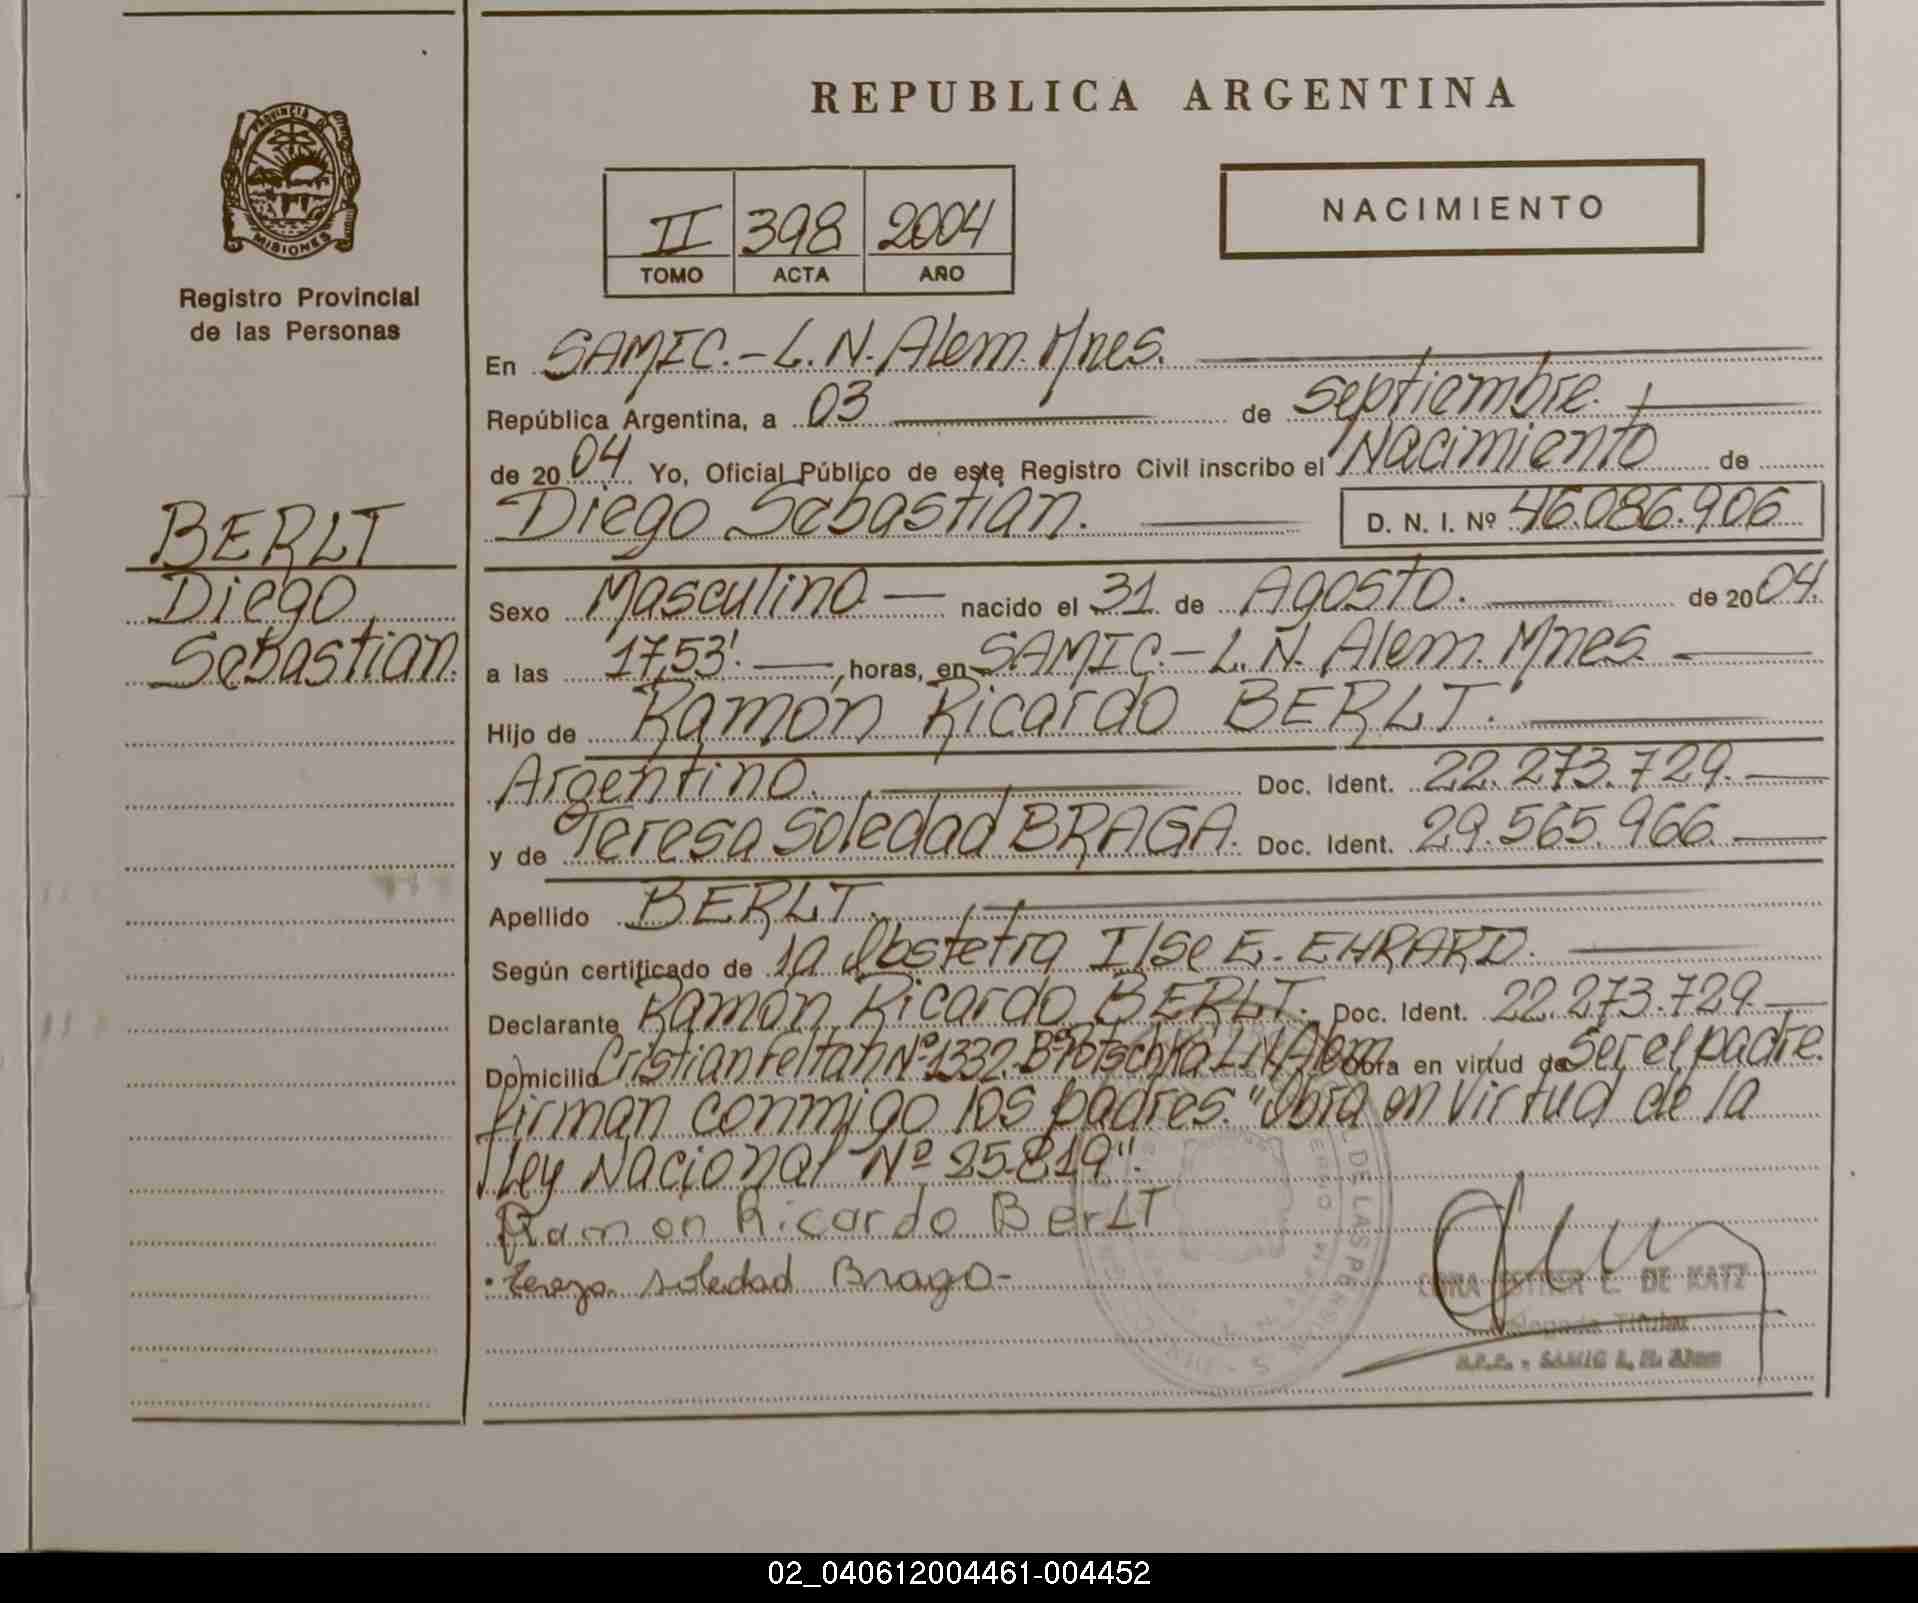 REPUBLICA ARGENTINA
PROVINCIA DE
MISIONES
Registro Provincial
de las Personas
NACIMIENTO
II 398 2004
TOMO ACTA AÑO
En SAMIC.-L.N. Alem. Mnes.
República Argentina, a 03 de septiembre.
de 2004 Yo, Oficial Público de este Registro Civil inscribo el Nacimiento de
Diego Sebastian. D. N. I. Nº 46.086.906
BERLT
Diego
Sebastian.
Sexo Masculino nacido el 31 de Agosto. de 2004.
a las 17,53'. horas, en SAMIC.-L.N. Alem. Mnes.
Hijo de Ramón Ricardo BERLT.
Argentino. Doc. Ident. 22.273.729.
y de Teresa Soledad BRAGA. Doc. Ident. 29.565.966.
Apellido BERLT.
Según certificado de la Obstetra Ilse E. EHRARD.
Declarante Ramón Ricardo BERLT. Doc. Ident. 22.273.729.
Domicilio Cristian Nº 1332. L.N. Alem Obra en virtud de Ser el padre.
firman conmigo los padres. "Obra en Virtud de la
Ley Nacional Nº 25.819".
Ramon Ricardo BerLT
soledad Braga-
ESTHER C. DE KATZ
Titular
R.P.P. - SAMIC L. N. Alem
02_040612004461-004452